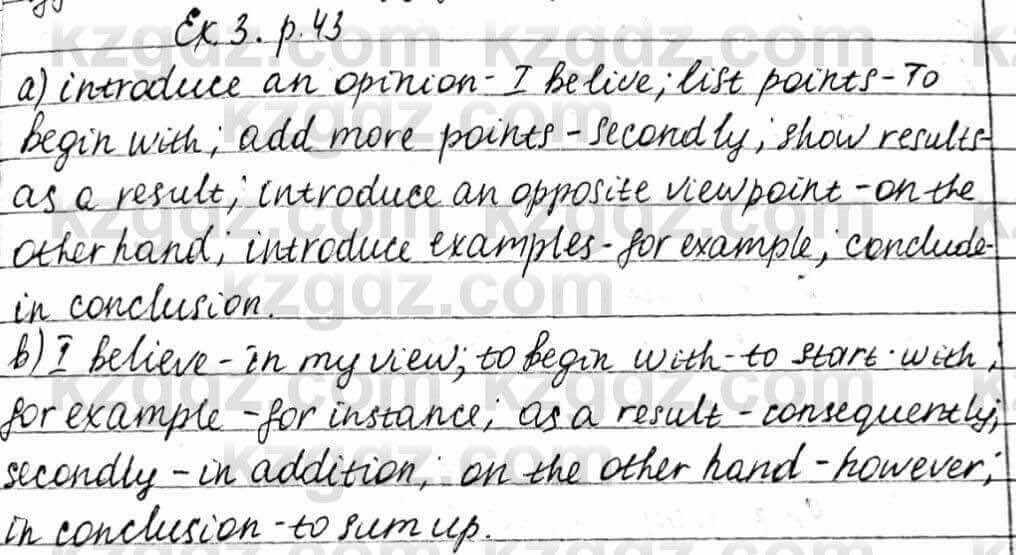 Ex. 3. p. 43
a) introduce an opinion - I belive; list points - To
begin with; add more points - secondly; show results-
as a result; introduce an opposite viewpoint - on the
other hand; introduce examples - for example; conclude-
in conclusion.
b) I believe - in my view; to begin with - to start with;
for example - for instance; as a result - consequently;
secondly - in addition; on the other hand - however;
in conclusion - to sum up.
kzgdz.com